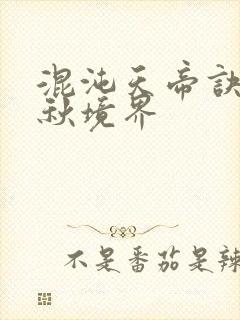 混沌天帝诀
秋境界
不是番茄是辣